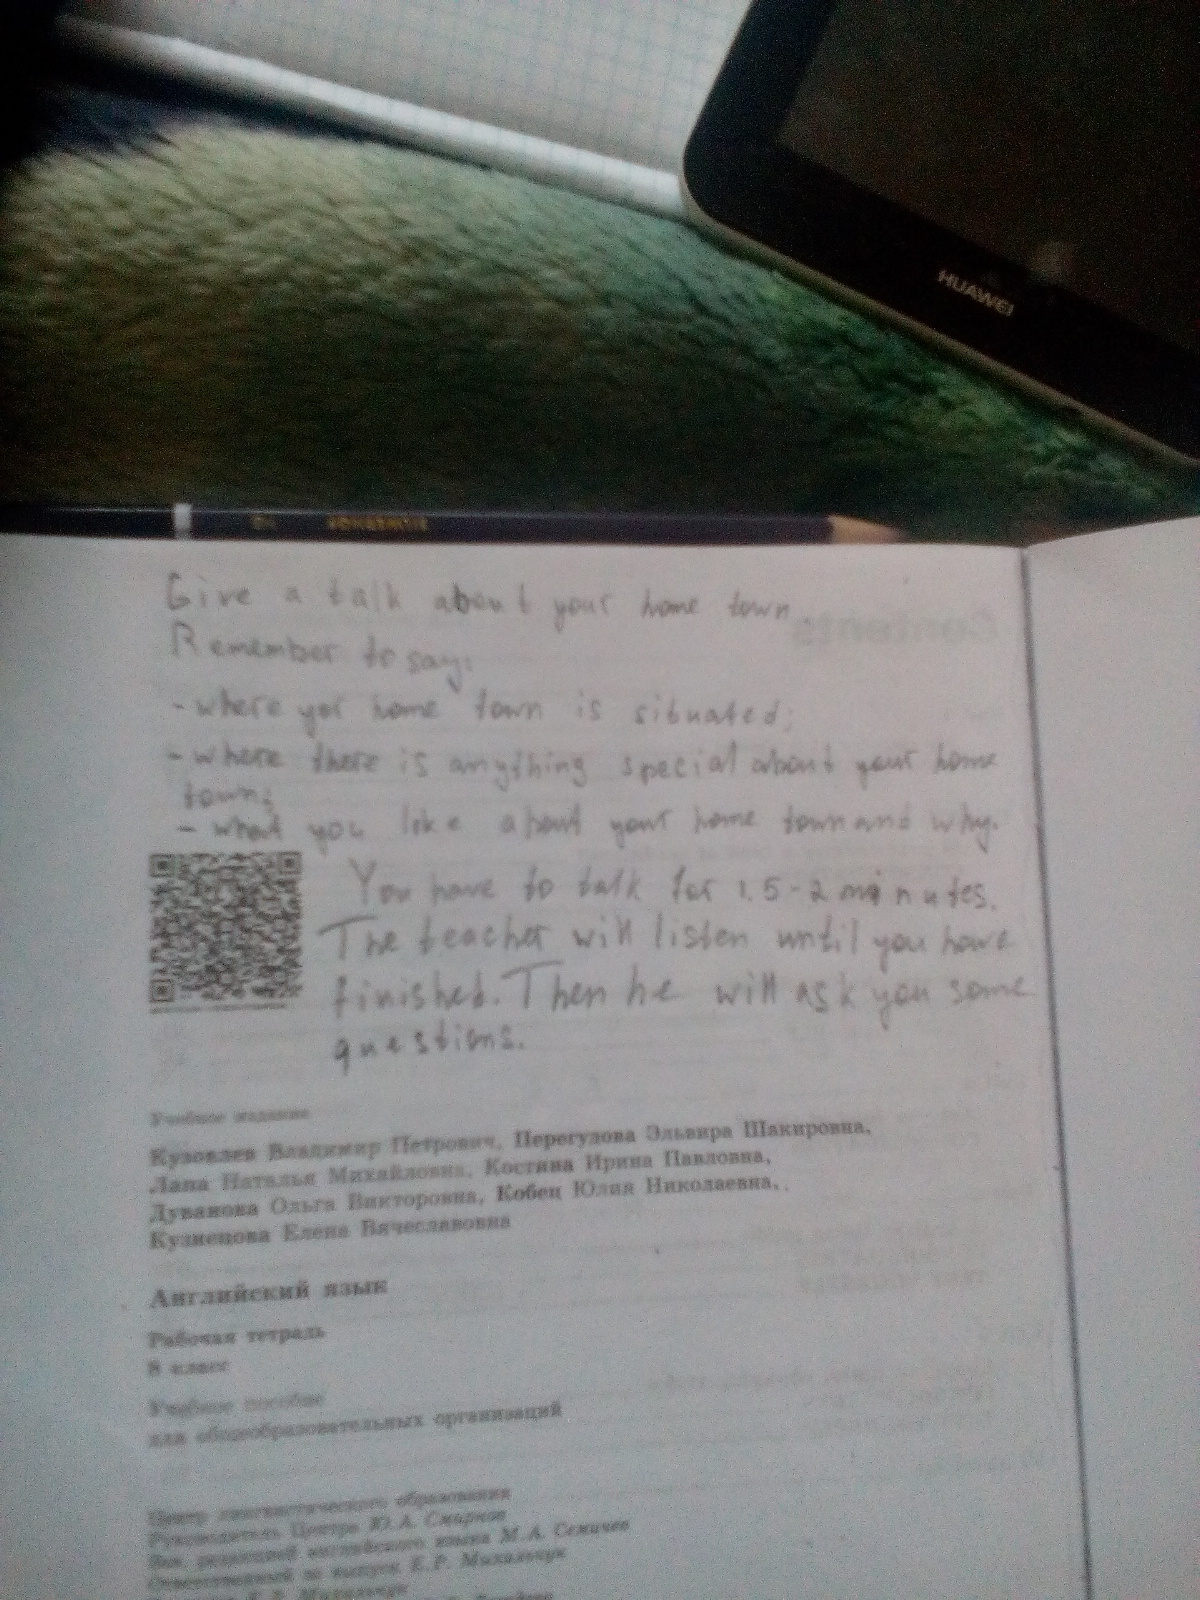 HUAWEI
Give a talk about your home town
Remember to say:
- where yor home town is situated;
- where there is anything special about your home
town;
- what you like about your home town and why.
You have to talk for 1.5-2 minutes.
The teacher will listen until you have
finished. Then he will ask you some
questions.
Contents
Учебное издание
Кузовлев Владимир Петрович, Перегудова Эльвира Шакировна,
Лапа Наталья Михайловна, Костина Ирина Павловна,
Дуванова Ольга Викторовна, Кобец Юлия Николаевна,
Кузнецова Елена Вячеславовна
Английский язык
Рабочая тетрадь
8 класс
Учебное пособие
для общеобразовательных организаций
Центр лингвистического образования
Руководитель Центра Ю.А. Смирнов
Зав. редакцией английского языка М.А. Семичев
Ответственный за выпуск Е.Р. Михальчук